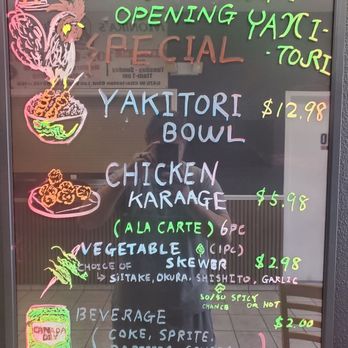 OPENING YAKI-
SPECIAL TORI
YAKITORI $12.98
BOWL
CHICKEN
KARAAGE $5.98
(ALA CARTE) 6PC
VEGETABLE (1PC)
CHOICE OF SKEWER $2.98
SIITAKE, OKURA, SHISHITO, GARLIC
50/50 SPICY
CHANCE OR NOT
CANADA
DRY
BEVERAGE $2.00
(COKE, SPRITE,